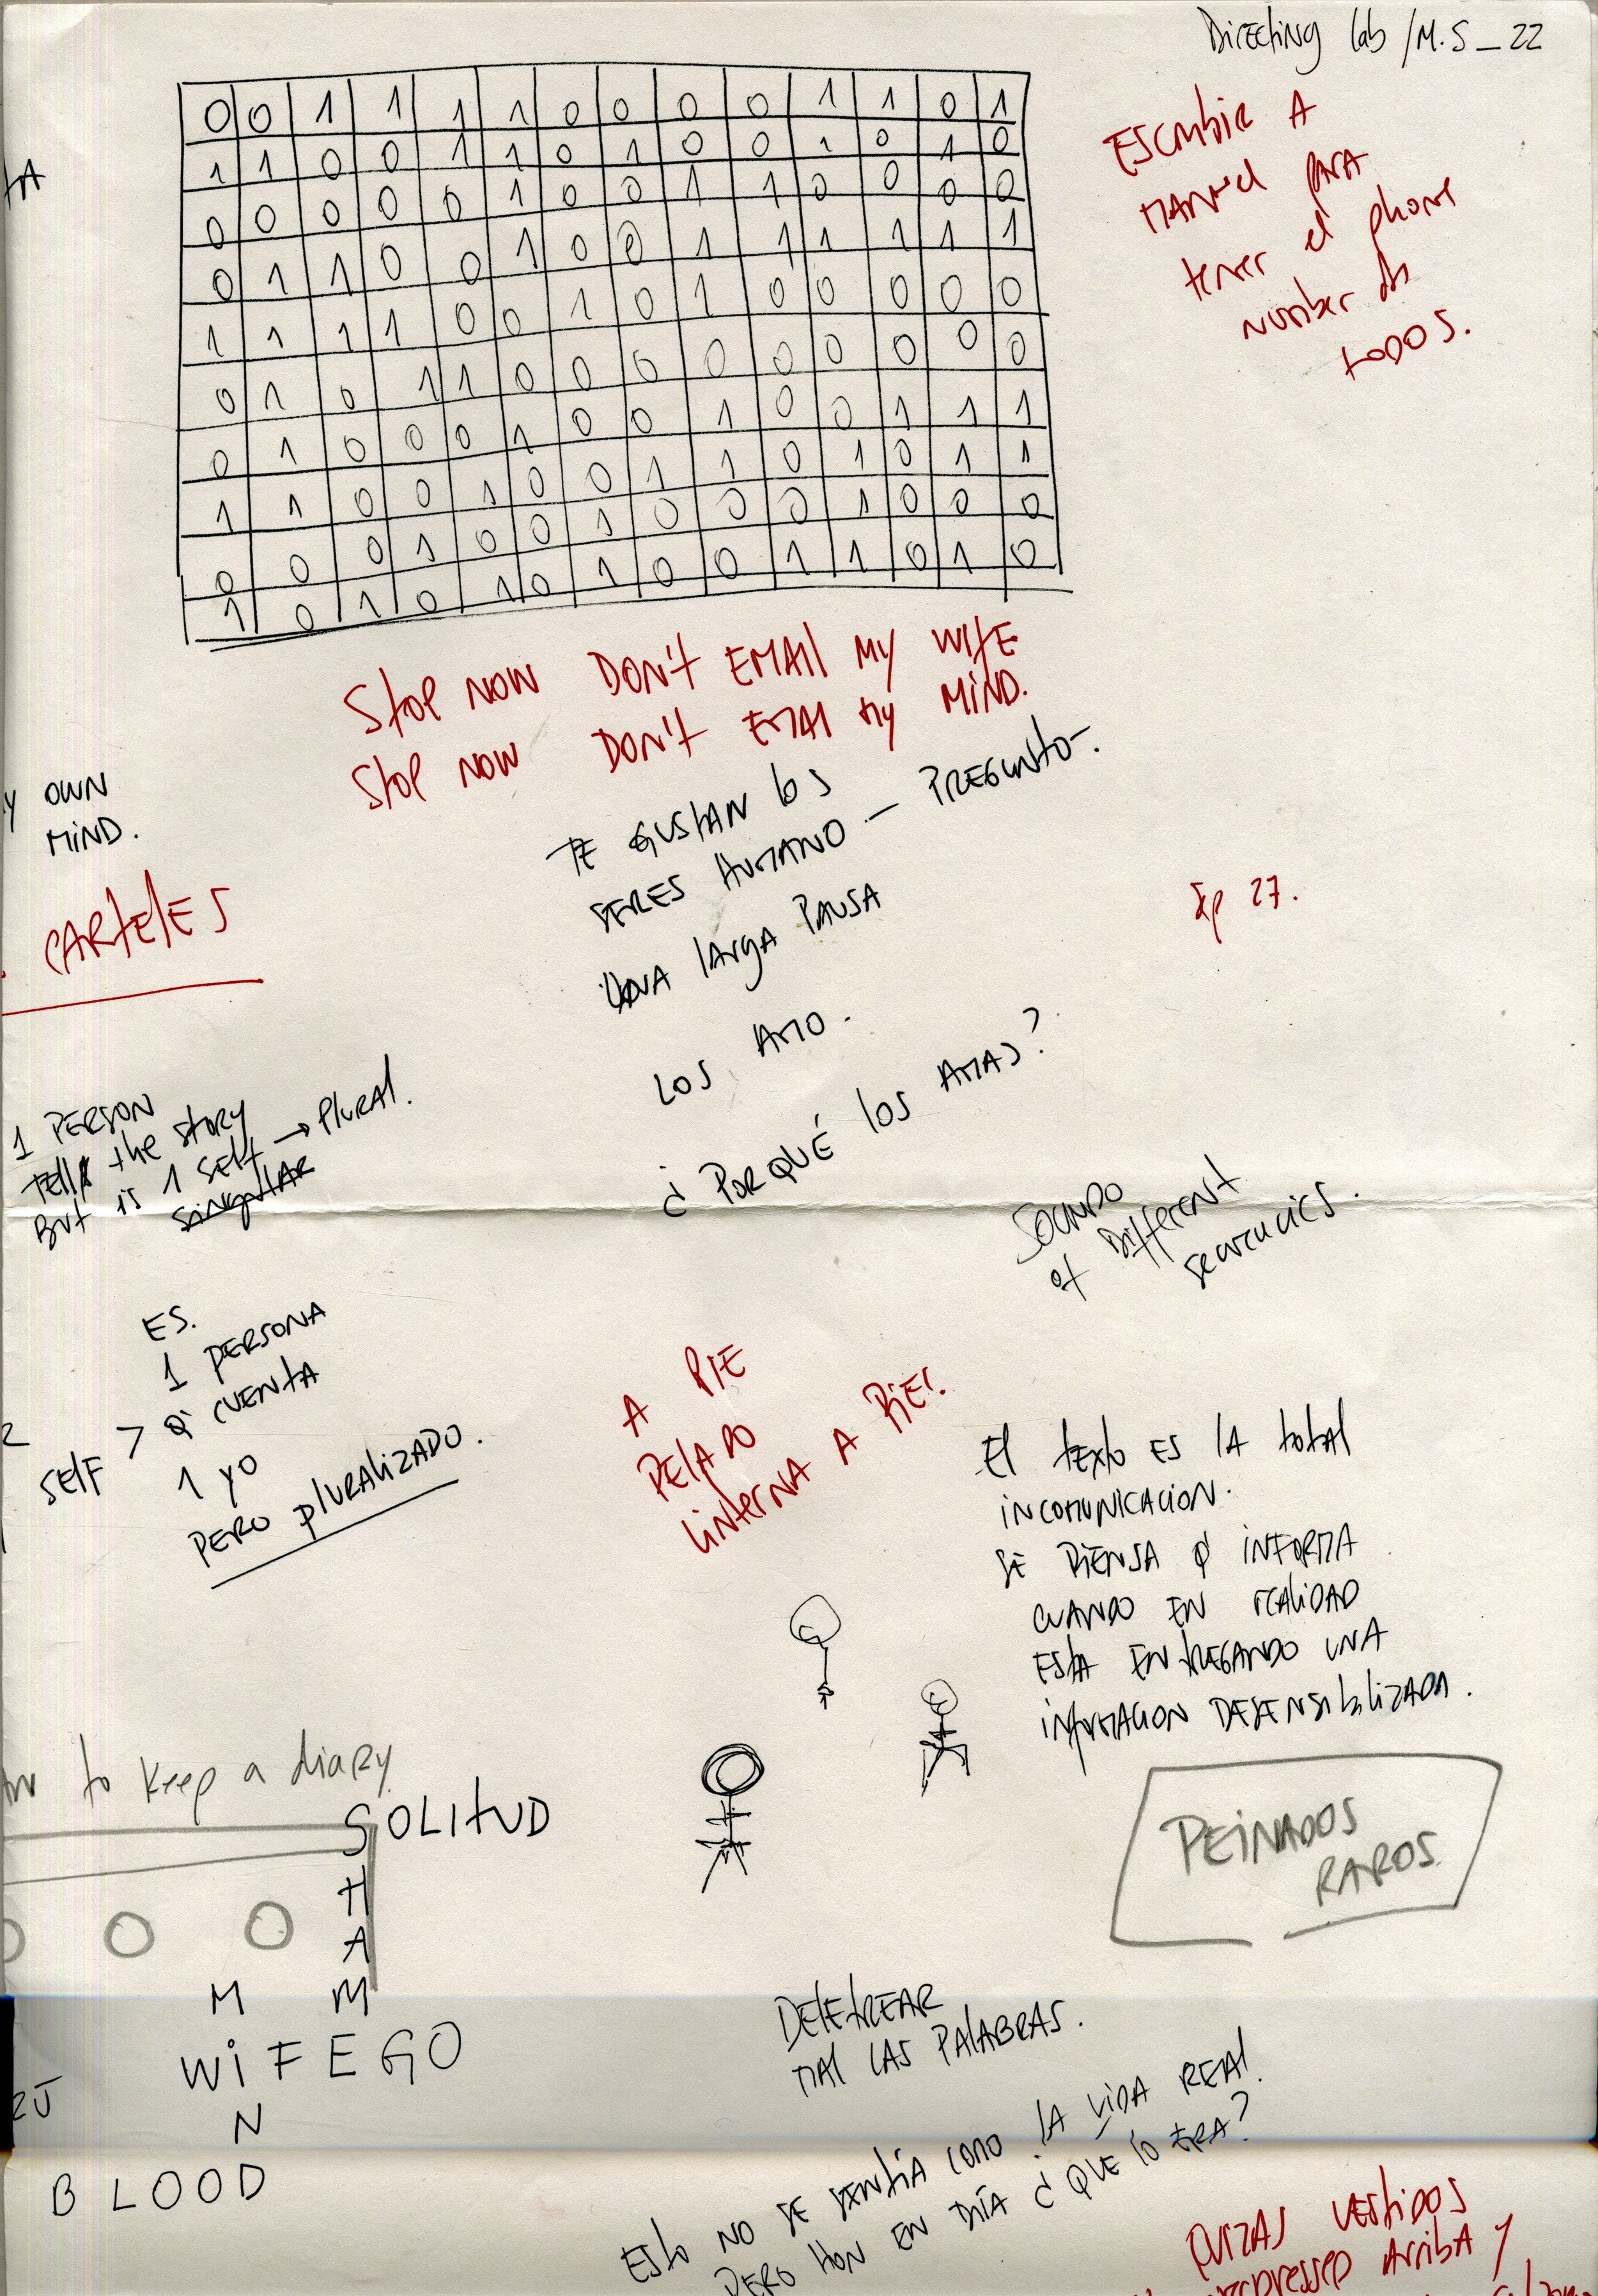 Directing lab / M.S _ 22
0 0 1 1 1 1 0 0 0 0 1 1 0 1
1 1 0 0 1 1 0 1 0 0 1 0 1 0
0 0 0 0 0 1 0 0 1 1 0 0 0 0
0 1 1 0 0 1 0 0 1 1 1 1 1 1
1 1 1 1 0 0 1 0 1 0 0 0 0 0
0 1 0 1 1 0 0 0 0 0 0 0 0 0
0 1 0 0 0 1 0 0 1 0 0 1 1 1
1 1 0 0 1 0 0 1 1 0 1 0 1 1
0 0 0 1 0 0 1 0 0 0 1 0 0 0
1 0 1 0 1 0 1 0 0 1 1 0 1 0
ESCRIBIR A
MANUEL PARA
tener el phone
number de
todos.
StOP NOW DON't EMAIl MY WIFE
StOP NOW DON't EMAI MY MIND.
Y OWN
MIND.
CARtElES
TE GUStAN lOS
SERES HUMANO — PREGUNtO-.
UNA lARgA PAUSA
LOS AMO.
¿ PORQUÉ lOS AMAS?
Ep 27.
1 PERSON
TEll the StORY
But iS 1 SElf → PlURAl.
SingulAR
SOUND
of Different
ES.
1 PERSONA
Q' CUENtA
SElF > 1 YO
PERO PlURAlIZADO.
A PIE
PElADO
linterna A PIE.
El tEXtO ES lA tOtAl
INCOMUNICACION.
SE PIENSA Q' INFORMA
CUANDO EN REAliDAD
EStA ENtREGANDO UNA
INFORMACION DESENSIbIlIZADA.
to keep a diary
SOLItUD
H
A
M M
WiFEGO
N
BLOOD
PEINADOS
RAROS.
DElEtREAR
MAl LAS PAlABRAS.
EStO NO SE SENtÍA COMO lA VIDA REAl.
PERO HOY EN DÍA ¿ QUE lO ERA?
QUIZAS VEStIDOS
ARRIbA Y